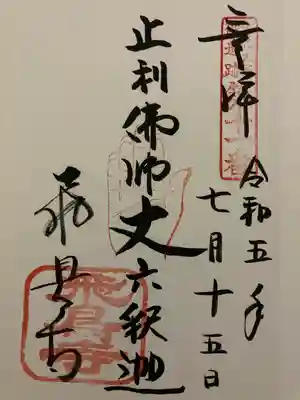 奉拝
令和五年
七月十五日
止利佛師丈六釈迦
飛鳥寺
飛鳥寺